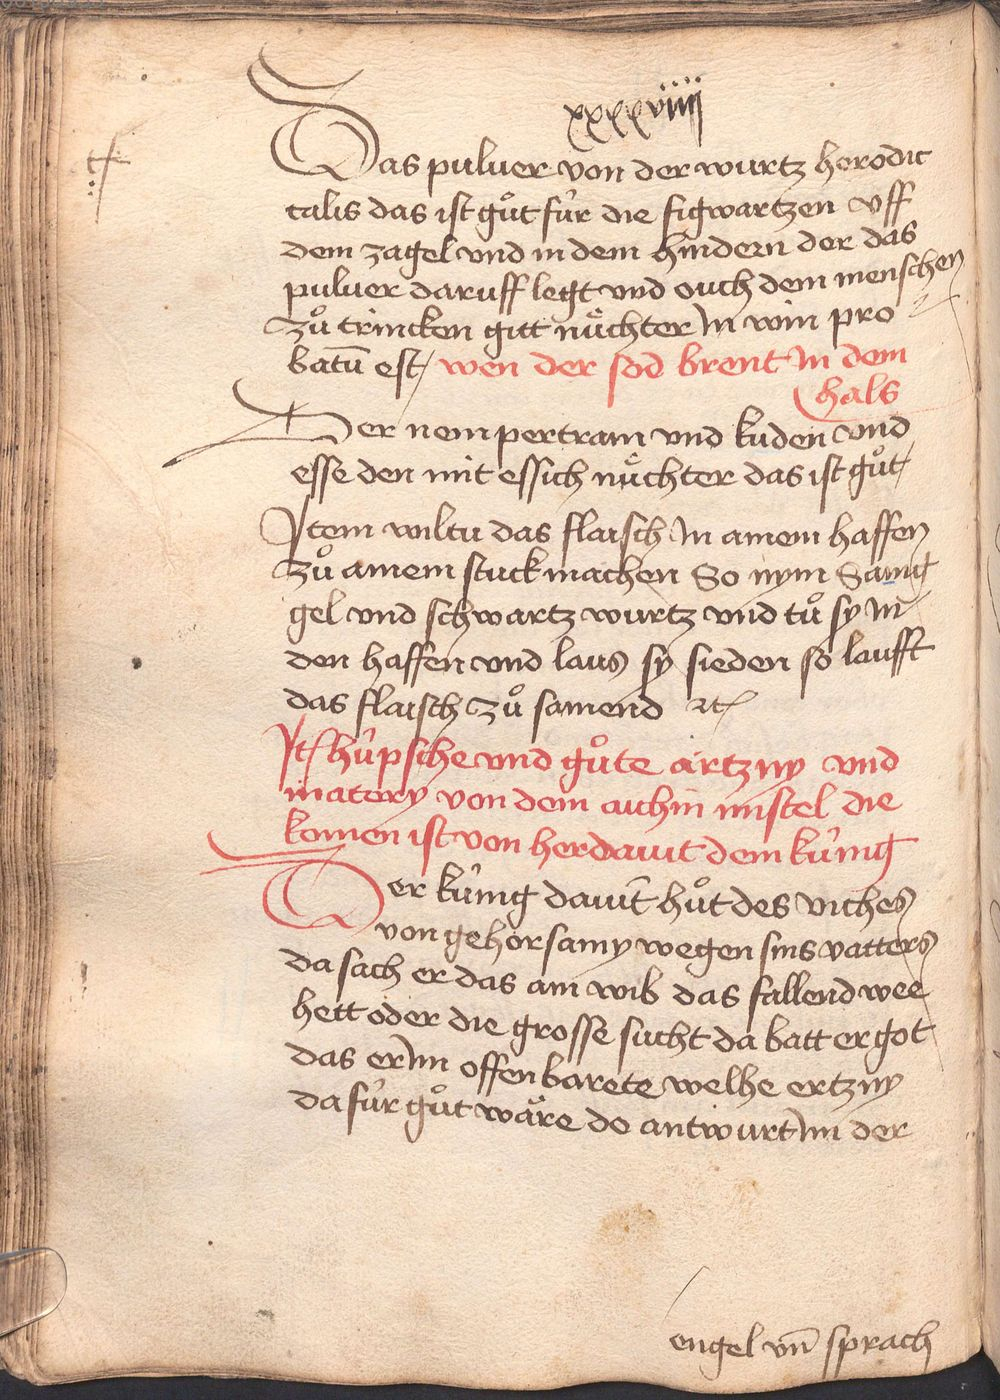 xxxxviiij
Das puluer von der wurtz herodic
talis das ist gůt fúr die figwartzen vff
dem zagel vnd in dem hindern der das
puluer daruff legt vnd ouch dem menschen
zů trincken gitt nuͤchter In win pro
batū est wen der sod brent In dem
hals
Der nem pertram vnd kuden vnd
esse den mit essich nuͤchter das ist gůt
Item wiltu das flaisch In ainem haffen
zů ainem stuck machen So nym Sanig
gel vnd schwartz wurtz vnd tů sy In
den haffen vnd laus sy sieden so laufft
das flaisch zů samend
It húpsche vnd gůte artzny vnd
matery von dem aichin mistel die
komen ist von her dauit dem kúnig
Der kúnig dauit hůt des viches
von gehorsamy wegen sins vatters
da sach er das ain wib das fallend wee
hett oder die grosse sucht da batt er got
das er Im offenbarete welhe ertzny
da fúr gůt waͤre do antwurt Im der
engel vn̄ sprach